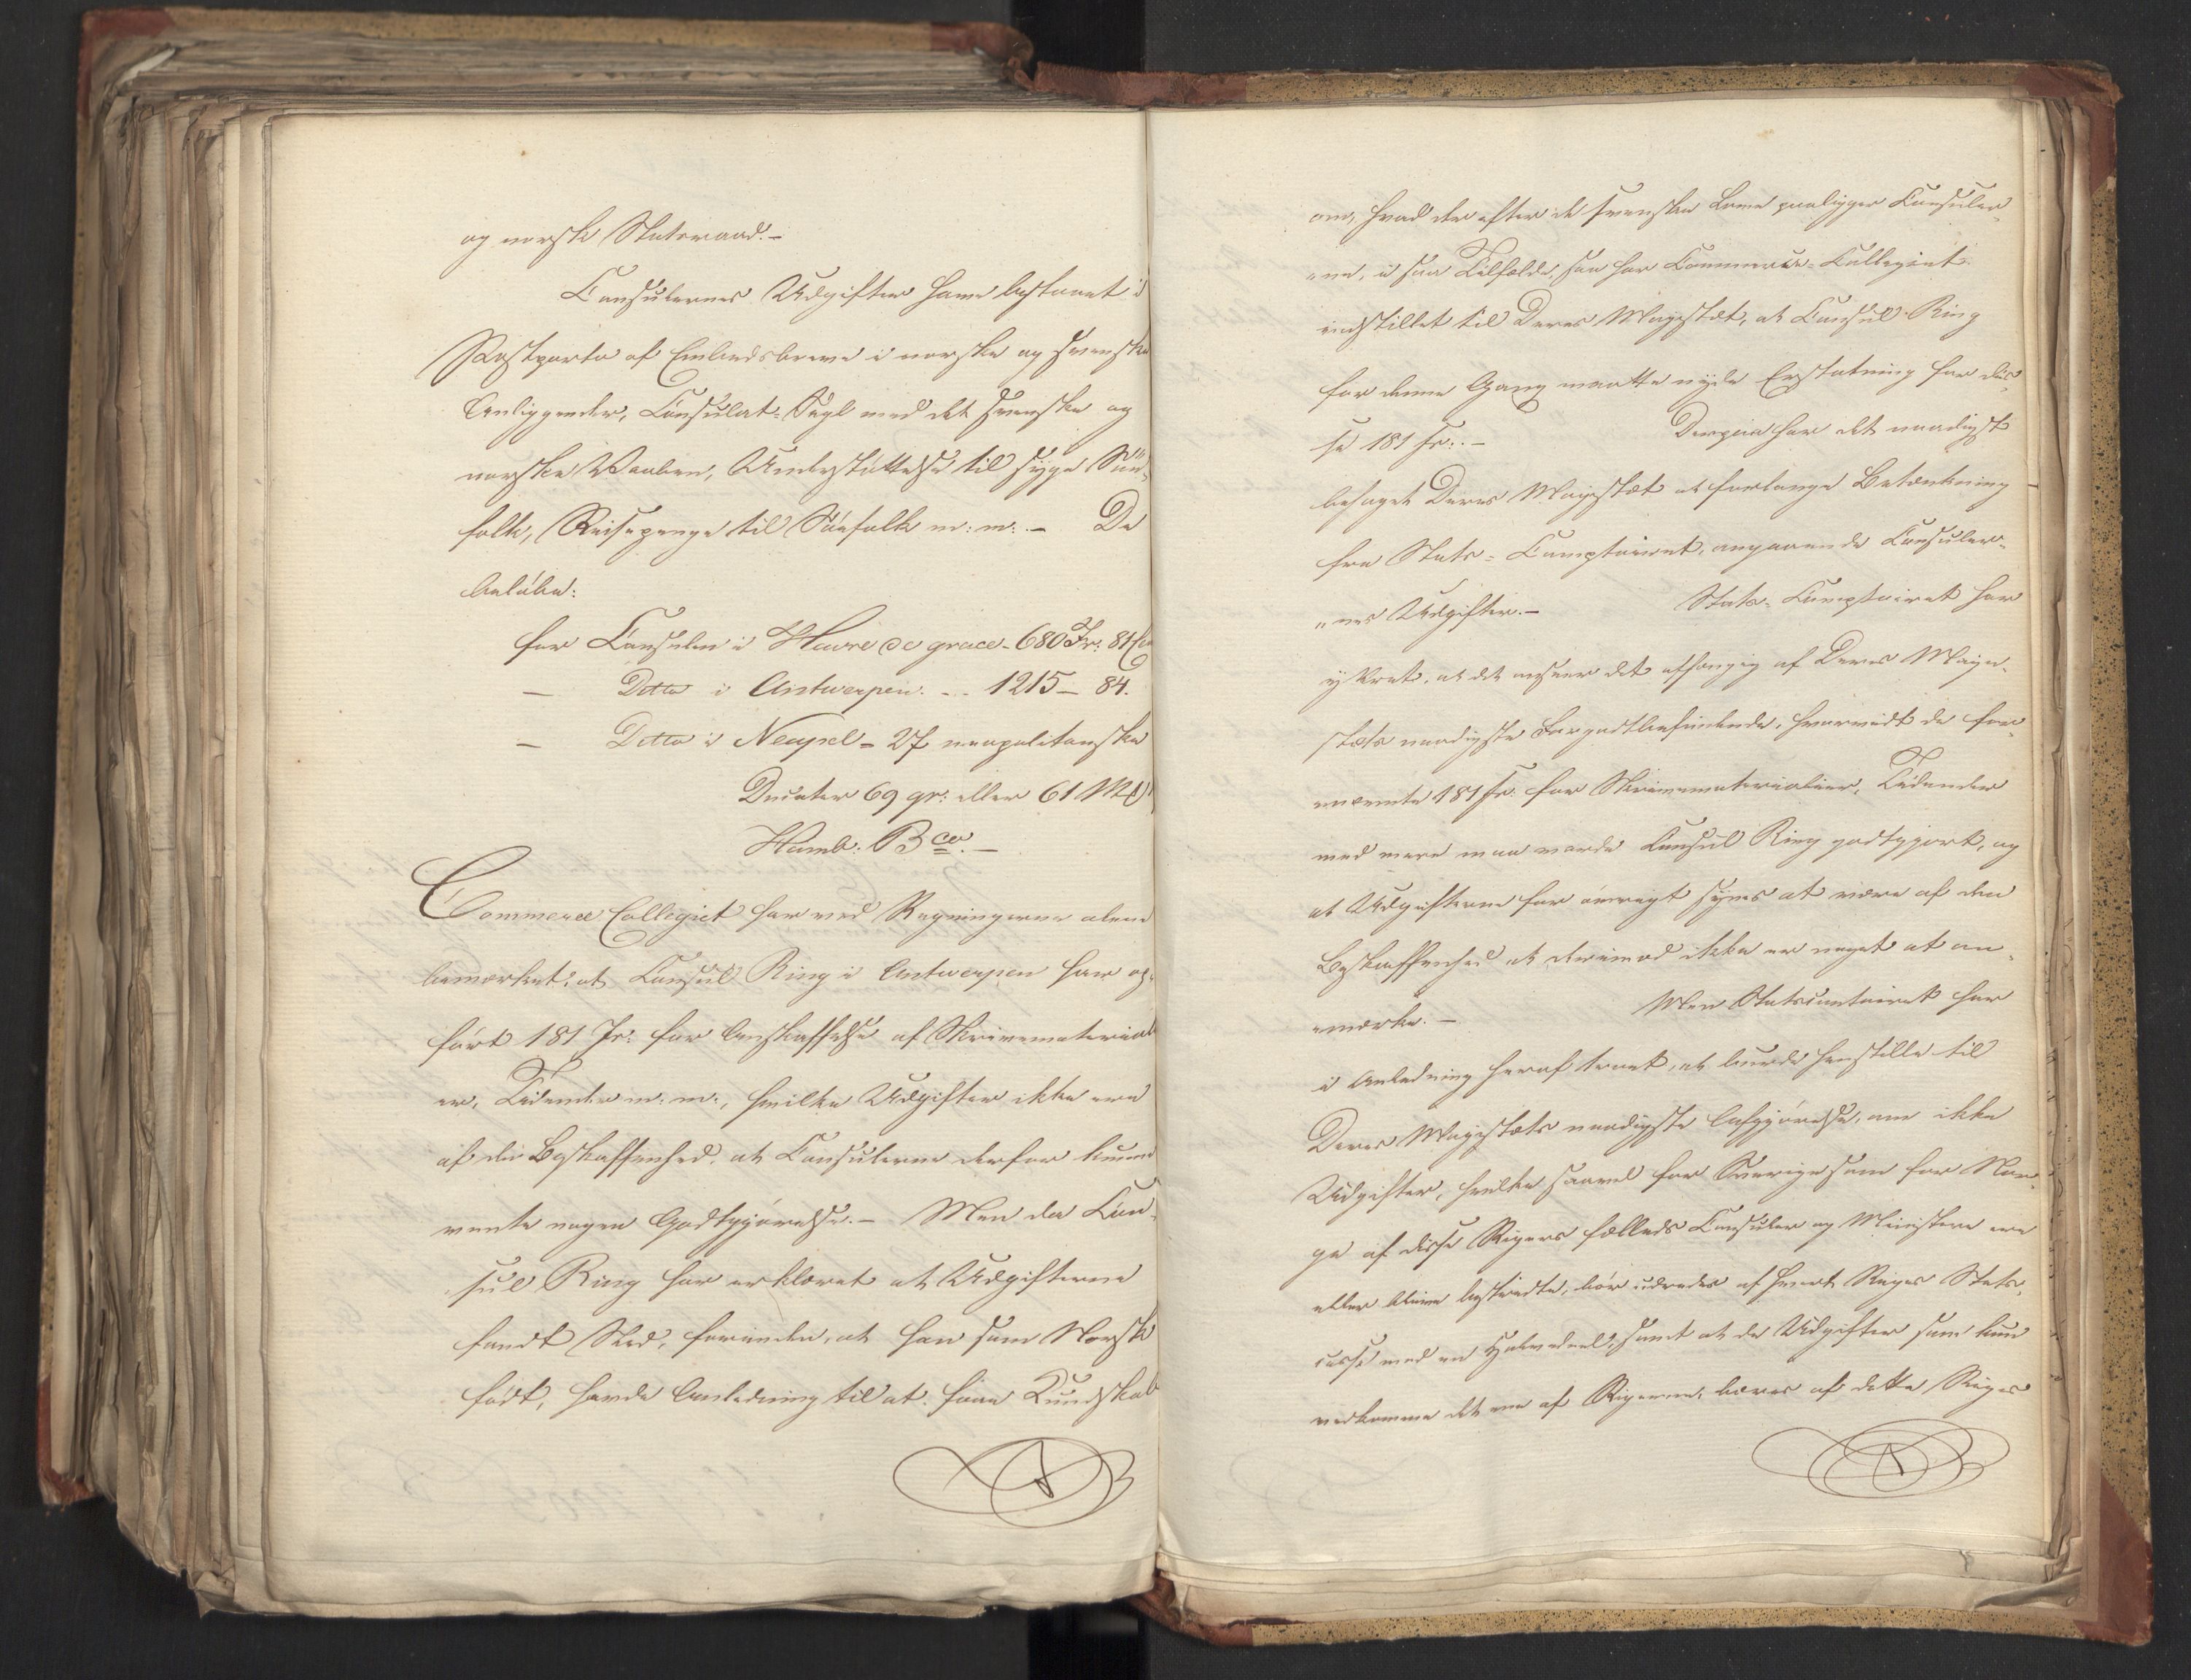 og norske Statsraad. –
Consulernes Udgifter have bestaaet i
Postporto af Embedsbreve i norske og svenske
Anliggender, Consulat-Segl med det svenske og
norske Vaaben, Understøttelse til syge Søe-
folk, Reisepenge til Søefolk m: m: – De
beløbe:
for Consulen i Havre de grace – 680 Fr: 84 Ce
– Ditto i Antwerpen . . . 1215 – 84.
– Ditto i Neapel – 27 neapolitanske
Ducater 69 gr: eller 61 Mk
Hamb: Bco. –
Commerce Collegiet har ved Regningerne alene
bemærket: at Consul Ring i Antwerpen har op-
ført 181 Fr: for Anskaffelse af Skrivematerial
er, Tidender m: m:, hvilke Udgifter ikke ere
af den Beskaffenhed, at Consulerne derfor kunne
vente nogen Godtgjørelse. – Men da Con-
sul Ring har erklæret at Udgifterne
fandt Sted, forinden, at han som Norsk
født, havde Anledning til at faae Kundskab
om, hvad der efter de svenske Love paaligger Consuler-
„ne, i saa Tilfælde, saa har Commerce-Collegiet
indstillet til Deres Majestæt, at Consul Ring
for denne Gang maatte nyde Erstatning for dis-
se 181 Fr: – Derpaa har det naadigst
behaget Deres Majestæt at forlange Betænkning
fra Stats-Comptoiret, angaaende Consuler-
„nes Udgifter. – Stats-Comptoiret har
yttret, at det anseer det afhængig af Deres Maje-
stæts naadigste Forgodtbefindende, hvorvidt de for-
nævnte 181 Fr. for Skrivematerialier, Tidender
med mere maa vorde Consul Ring godtgjort, og
at Udgifterne for øvrigt synes at være af den
Beskaffenhed at derimod ikke er noget at an-
„mærke. – Men Statscontoiret har
i Anledning heraf troet, at burde henstille til
Deres Majestæts naadigste Afgjørelse, om ikke
Udgifter, hvilke saavel for Sverige som for Nor-
ge af disse Rigers fælleds Consuler og Ministere ere
eller blive bestridte, bør udredes af hvert Riges Stats-
casse med en Halvedeel, samt at de Udgifter som kun
vedkomme det ene af Rigerne, bæres af dette Riges